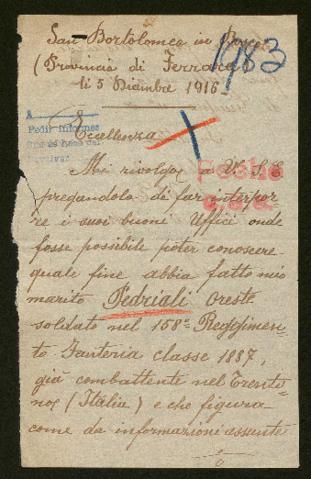 San Bortolomeo in Bosco
1983
(Provincia di Ferrara)
li 5 Dicembre 1916
A
Pedir informes
Eccellenza
Mi rivolgo a V. S.
pregandola di far interpor
re i suoi buoni Uffici onde
fosse possibile poter conoscere
quale fine abbia fatto mio
marito Pedriali Oreste
soldato nel 158º Reggimen
to Fanteria classe 1887,
già combattente nel Trenti
no (Italia) e che figura
come da informazioni assunte